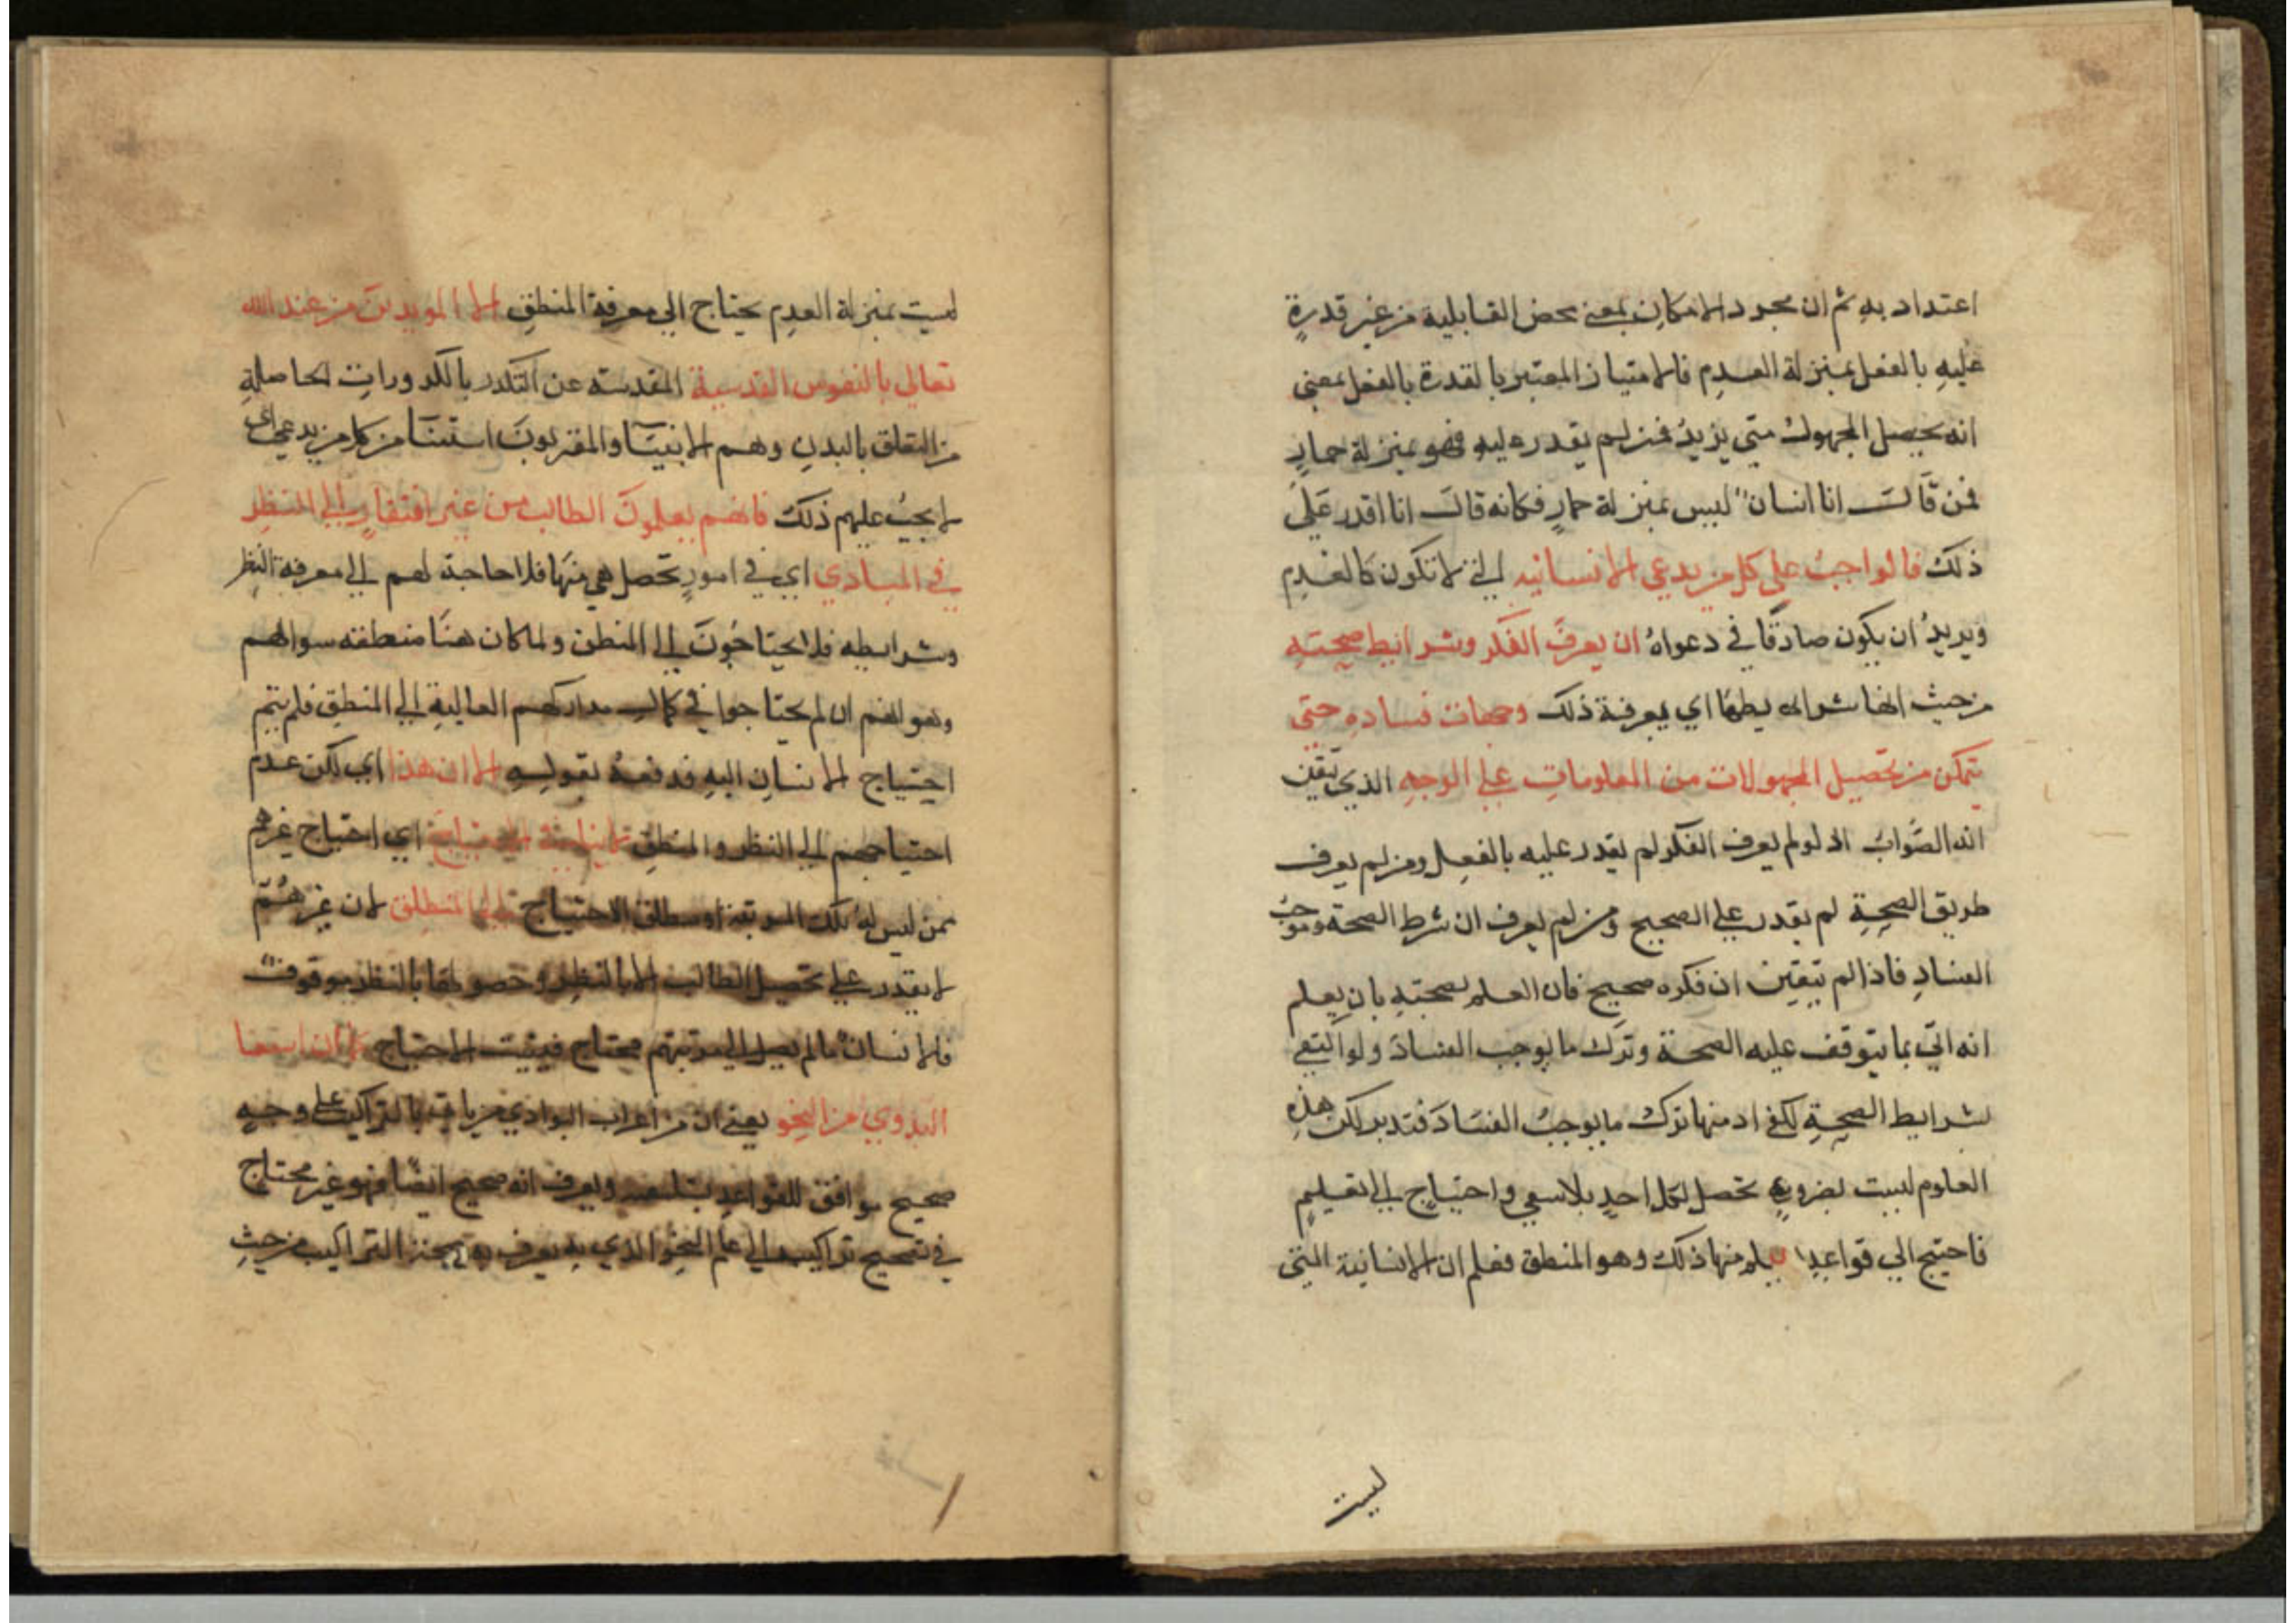 اعتداد به ثم ان مجرد الامكان بمعنى محض القابلية من غير قدرةٍ
عليهِ بالفعل بمنزلة العدمِ فالامتياز المعتبر بالقدرة بالفعل بمعنى
انه يحصل المجهول متى يزيدُ فمن لم يقدر عليه فهو بمنزلة حمارٍ
فمن قالَ انا انسانٌ ليس بمنزلة حمارٍ فكانه قالَ انا اقدر عَلَى
ذلكَ فالواجبُ على كل من يدعي الانسانيه لئ لا تكون كالعدمِ
ويريدُ ان يكون صادقًا في دعواهُ ان يعرفَ الفكر وشرايط صحتهِ
من حيث انها شرايطها اي يعرفة ذلك وجهات فسادهِ حتى
يتمكن من تحصيل المجهولات من المعلوماتِ على الوجهِ الذي تيقن
انه الصَّوابُ اذ لو لم يعرف الفكر لم يقدر عليه بالفعِل ومن لم يعرف
طريق الصحةِ لم يقدر على الصحيح ومن لم يعرف ان شرط الصحة وموجبُ
الفسادِ فاذا لم تيقين ان فكره صحيح فان العلم بصحتهِ بان يعلم
انه اتى بما يتوقف عليه الصحة وترَك ما يوجب الفسادَ ولو اكتفى
بشرايط الصحةِ لكفى اد منها تركُ ما يوجبُ الفسَادَ فتدبر لكن هذهِ
العلوم ليست بضروريةٍ تحصل لكل احدٍ بلا سعي واحتياجٍ الى تعليمٍ
فاحتيج الى قواعدٍ يعلم منها ذلك وهو المنطق فعلم ان الانسانية التى
ليست
ليست بمنزلة العدمِ يحتاج الى معرفة المنطقِ الا المويدينَ من عند الله
تعالى بالنفوس القدسية المقدسه عن التكدر بالكدوراتِ الحاصلةِ
من التعلق بالبدنِ وهم الانبيَآ والمقربونَ استثنَآ من كل من يدعي اى
لا يجبُ عليهم ذلكَ فانهم يعلمونَ الطالب من غير افتقارٍ الى النظرِ
في المبادي اي في امورٍ تحصل هي منها فلا حاجة لهم الى معرفة النظر
وشرايطه فلا يحتاجُونَ الى المنطق ولما كان هنَا منطقته سوالهم
وهو انهم ان لم يحتاجوا في كمالِ مداركهم العاليةِ الى المنطقِ فلم يتم
احتياج الانسانِ اليهِ فدفعهُ بقولِهِ الا ان هذا اي لكن عدم
احتياجهم الى النظر والمنطقِ لا ينافي الاحتياجَ اي احتياج غيرهم
ممن ليس لهُ تلك المرتبة او مطلق الاحتياج اليها المنطلق لان غيرهُمّ
لا يقدر على تحصيل الطالب الا بالنظرِ وحصولها بالنظر موقوفٌ
فالانسانُ ما لم يصل الى مرتبتهم محتاج فيثبت الاحتياج كما ان استغنا
البدوي من النحو يعني ان من اعراب البوادي من ياتي بالتراكيب على وجهٍ
صحيح موافق للقواعدِ بسليقته ويعرف انه صحيح ايضًا فهو غير محتاج
في تصحيح تراكيبه الى علم النحْوِ الذي به يعرف التراكيب من حيثِ